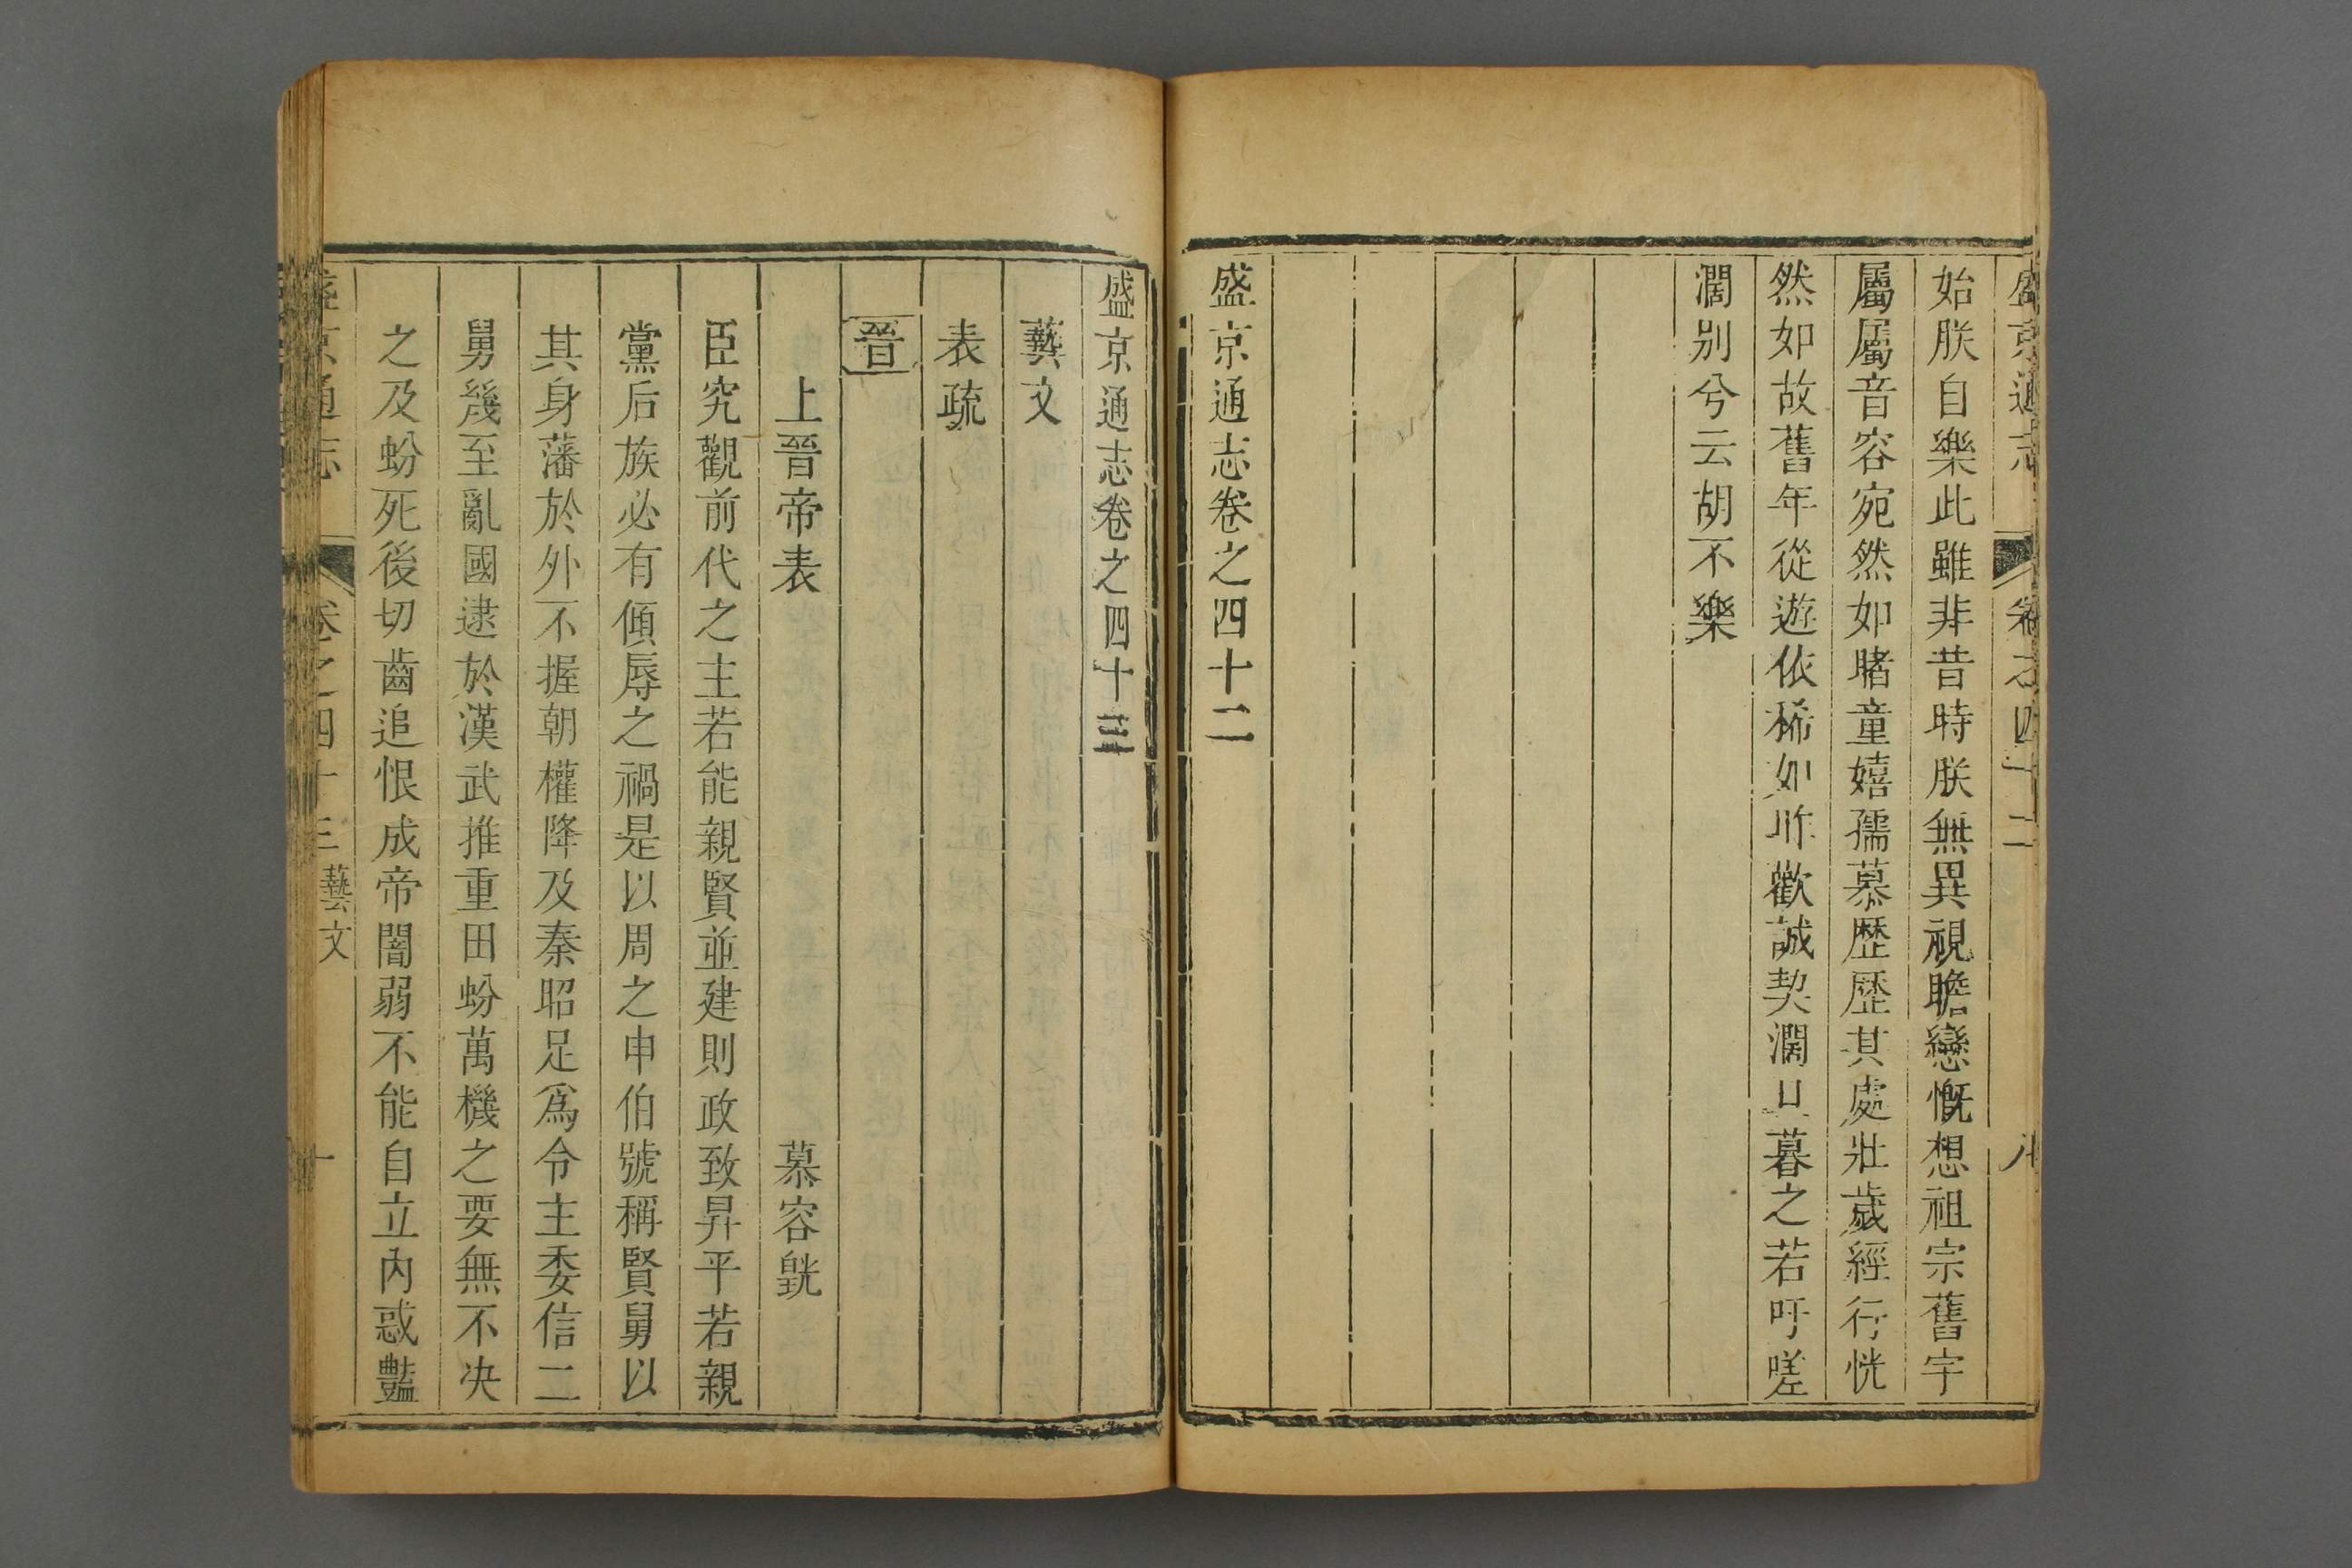 盛京通志 卷之四十二 八
始朕自樂此雖非昔時朕無異視瞻戀慨想祖宗舊宇
屬屬音容宛然如睹童嬉孺慕歷歷其處壯歲經行恍
然如故舊年從遊依稀如昨歡誠契濶日暮之若吁嗟
濶别兮云胡不樂
盛京通志卷之四十二
盛京通志卷之四十三
藝文
表疏
晉
上晉帝表 慕容皝
臣究觀前代之主若能親賢並建則政致昇平若親
黨后族必有傾辱之禍是以周之申伯號稱賢舅以
其身藩於外不握朝權降及秦昭足爲令主委信二
舅幾至亂國逮於漢武推重田蚡萬機之要無不决
之及蚡死後切齒追恨成帝闇弱不能自立内惑豔
盛京通志 卷之四十三 藝文 一